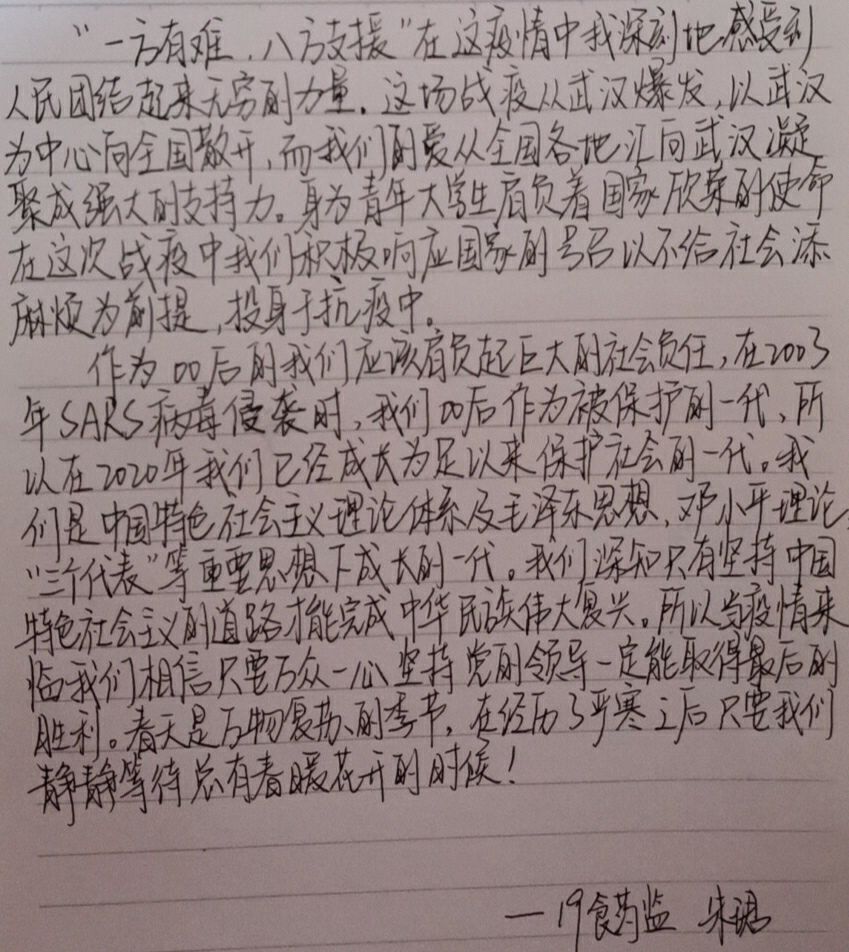 “一方有难，八方支援”在这疫情中我深刻地感受到
人民团结起来无穷的力量。这场战疫从武汉爆发，以武汉
为中心向全国散开，而我们的爱从全国各地汇向武汉凝
聚成强大的支持力。身为青年大学生肩负着国家欣荣的使命
在这次战疫中我们积极响应国家的号召以不给社会添
麻烦为前提，投身于抗疫中。
作为00后的我们应该肩负起巨大的社会责任，在2003
年SARS病毒侵袭时，我们00后作为被保护的一代，所
以在2020年我们已经成长为足以来保护社会的一代。我
们是中国特色社会主义理论体系及毛泽东思想，邓小平理论，
“三个代表”等重要思想下成长的一代。我们深知只有坚持中国
特色社会主义的道路才能完成中华民族伟大复兴。所以当疫情来
临我们相信只要万众一心坚持党的领导一定能取得最后的
胜利。春天是万物复苏的季节，在经历了严寒之后只要我们
静静等待总有春暖花开的时候！
—19食药监 朱